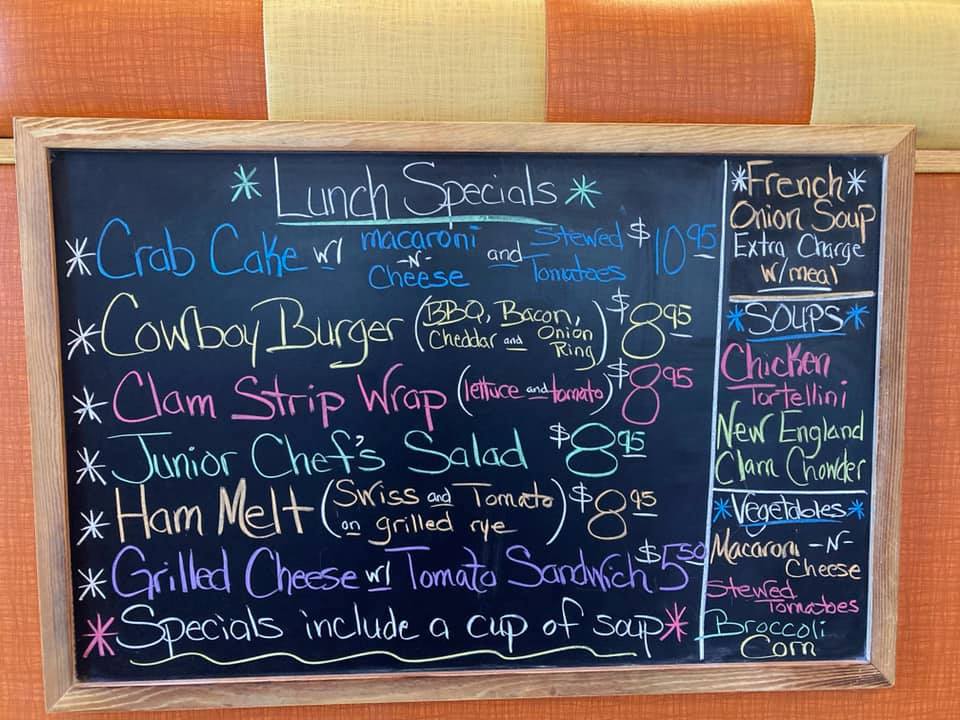 * Lunch Specials *
* Crab Cake w/ macaroni -N- Cheese and Stewed Tomatoes $10.95
* Cowboy Burger (BBQ, Bacon, Cheddar and Onion Ring) $8.95
* Clam Strip Wrap (lettuce and tomato) $8.95
* Junior Chef's Salad $8.95
* Ham Melt (Swiss and Tomato on grilled rye) $8.95
* Grilled Cheese w/ Tomato Sandwich $5.50
* Specials include a cup of soup *
* French *
Onion Soup
Extra Charge
w/meal
* SOUPS *
Chicken
Tortellini
New England
Clam Chowder
* Vegetables *
Macaroni -N-
Cheese
Stewed
Tomatoes
Broccoli
Corn